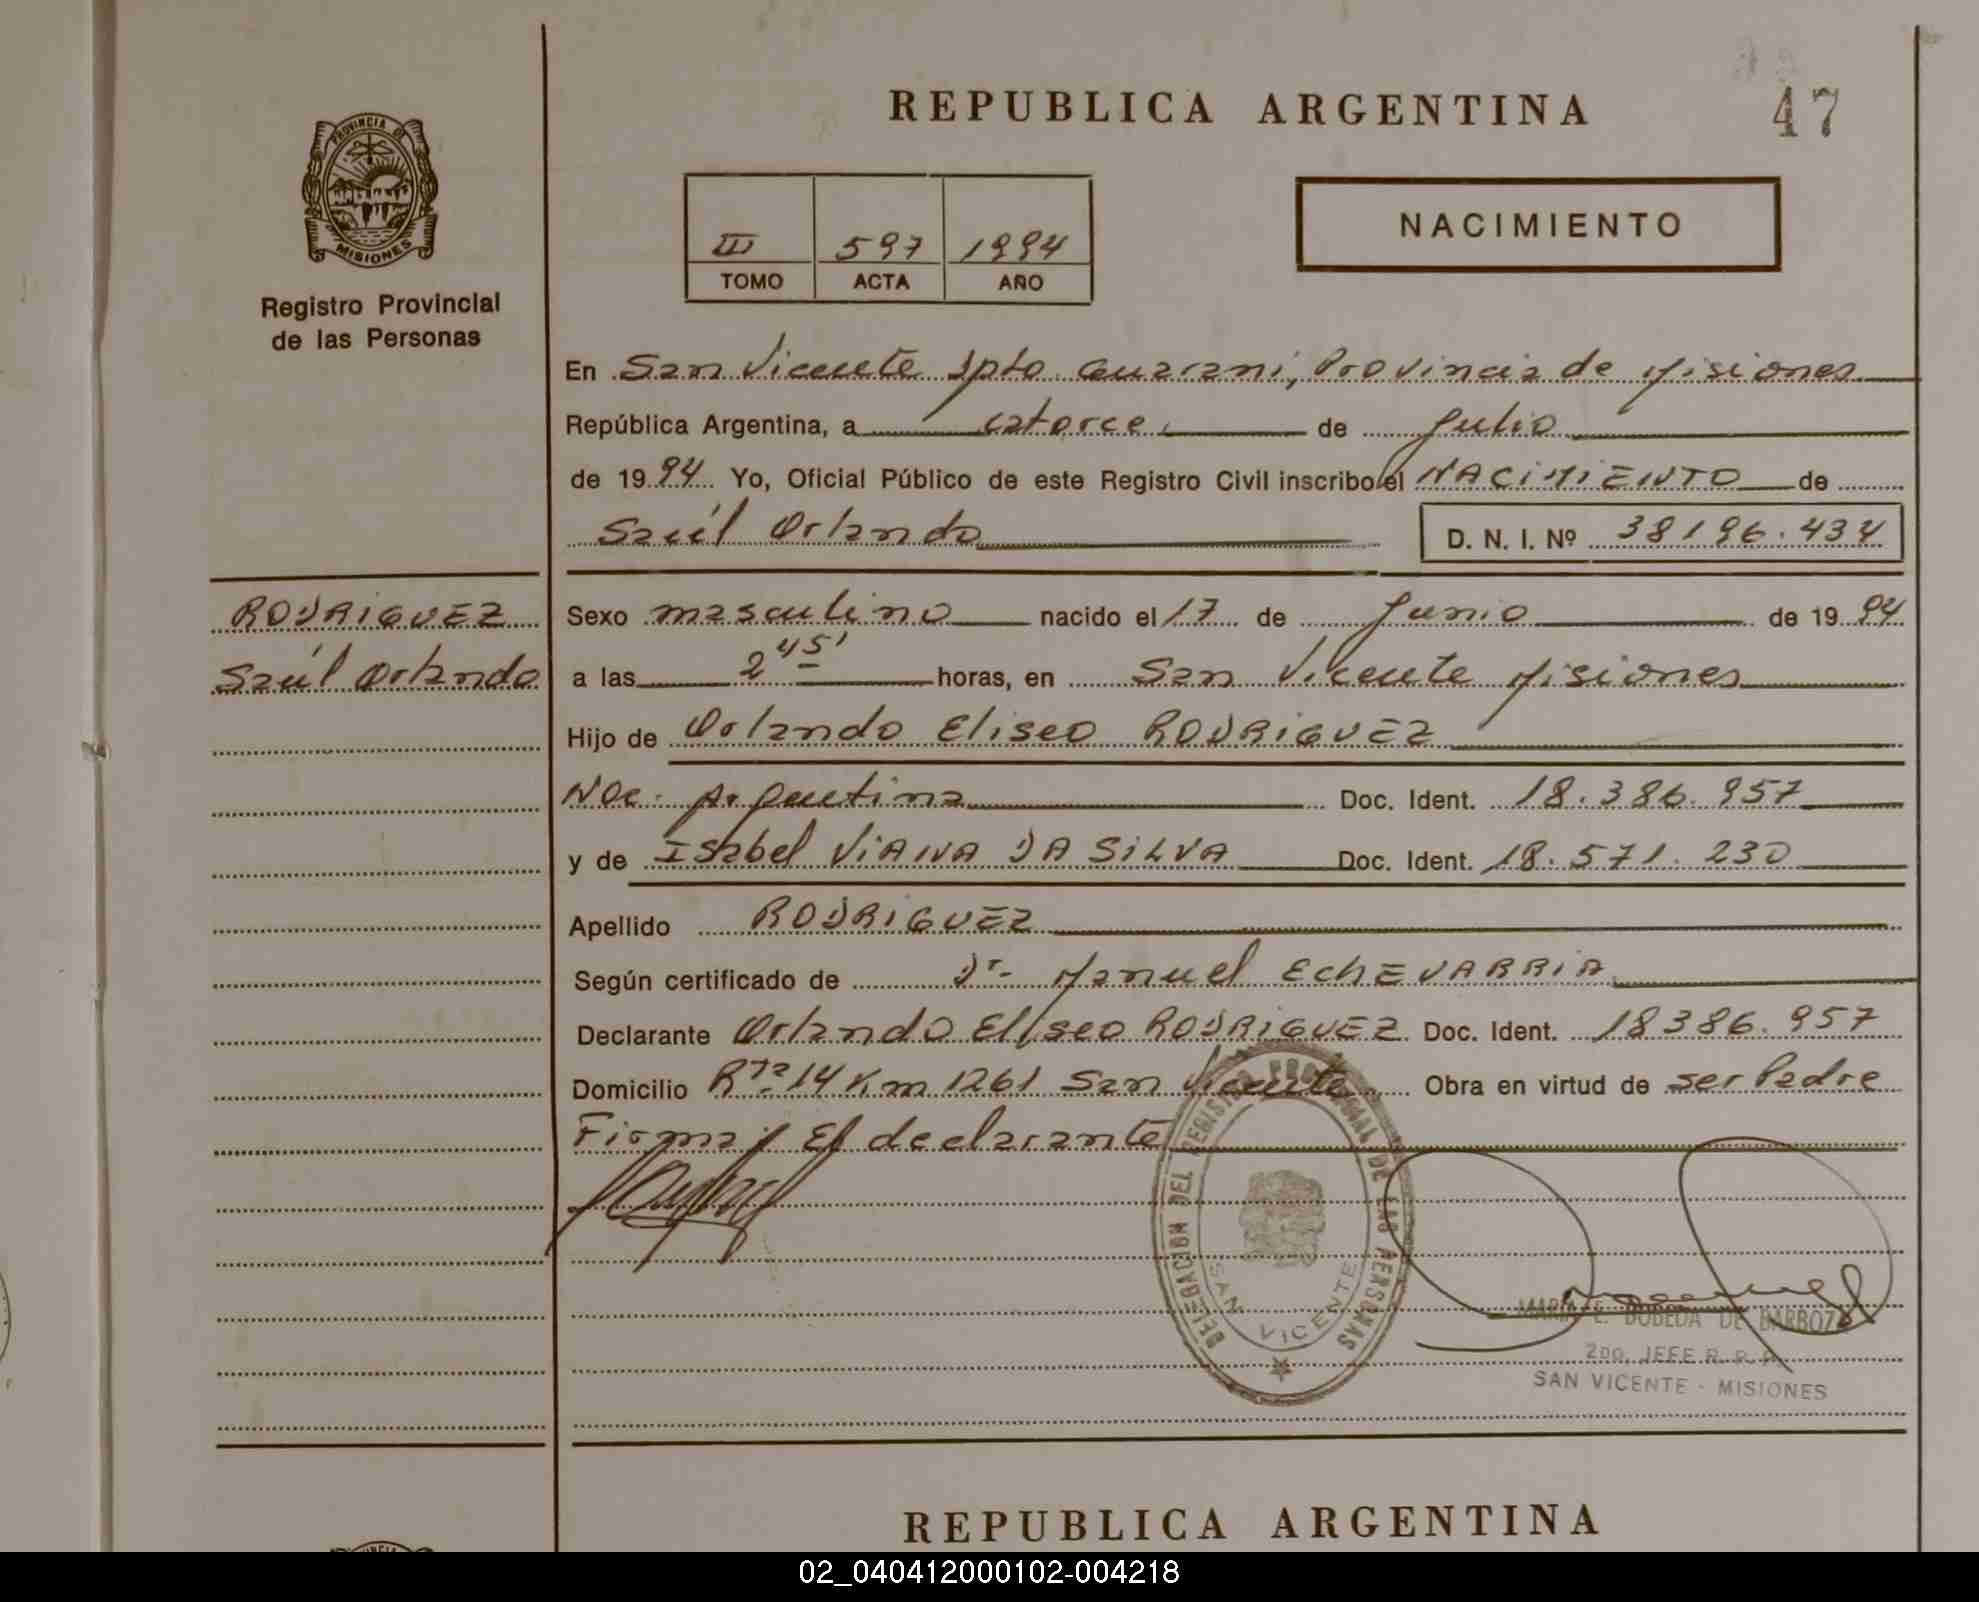 REPUBLICA ARGENTINA
47
PROVINCIA DE
MISIONES
Registro Provincial
de las Personas
III 597 1994
TOMO ACTA AÑO
NACIMIENTO
En San Vicente Dpto. Guarani, Provincia de Misiones
República Argentina, a catorce de Julio
de 1994 Yo, Oficial Público de este Registro Civil inscribo el NACIMIENTO de
Saúl Orlando D. N. I. Nº 38196.434
RODRIGUEZ
Saúl Orlando
Sexo masculino nacido el 17 de Junio de 1994
a las 2 45' horas, en San Vicente Misiones
Hijo de Orlando Eliseo RODRIGUEZ
Nac. Argentina Doc. Ident. 18.386.957
y de Isabel VIANA DA SILVA Doc. Ident. 18.571.230
Apellido RODRIGUEZ
Según certificado de Dr. Manuel EchEVARRIA
Declarante Orlando Eliseo RODRIGUEZ Doc. Ident. 18386.957
Domicilio Rta 14 Km 1261 San Vicente Obra en virtud de ser Padre
Firma: El declarante
DELEGACION DEL REGISTRO PROVINCIAL DE LAS PERSONAS
SAN VICENTE
MARIA E. BOBEDA DE BARBOZA
2DO. JEFE R. P. P.
SAN VICENTE - MISIONES
REPUBLICA ARGENTINA
02_040412000102-004218